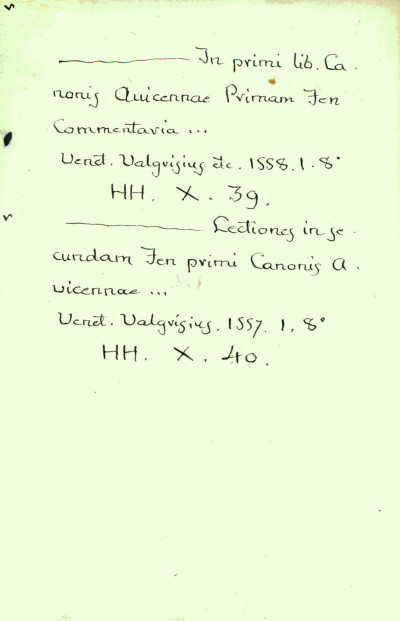 ——— In primi lib. Ca-
nonis Auicennae Primam Fen
Commentaria ...
Venet. Valgrisius etc. 1558. 1. 8°
HH. X. 39.
——— Lectiones in se-
cundam Fen primi Canonis A-
uicennae ...
Venet. Valgrisius. 1557. 1. 8°
HH. X. 40.